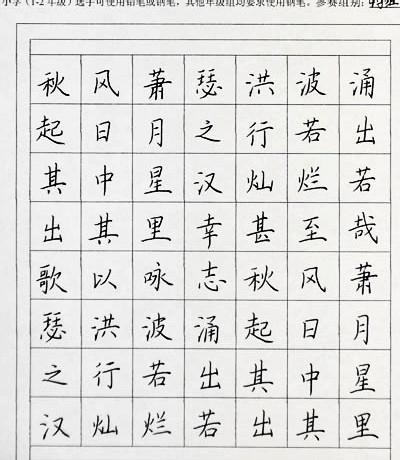 小学（1-2年级）选手可使用铅笔或钢笔，其他年级组均要求使用钢笔。参赛组别：
秋风萧瑟洪波涌
起日月之行若出
其中星汉灿烂若
出其里幸甚至哉
歌以咏志秋风萧
瑟洪波涌起日月
之行若出其中星
汉灿烂若出其里